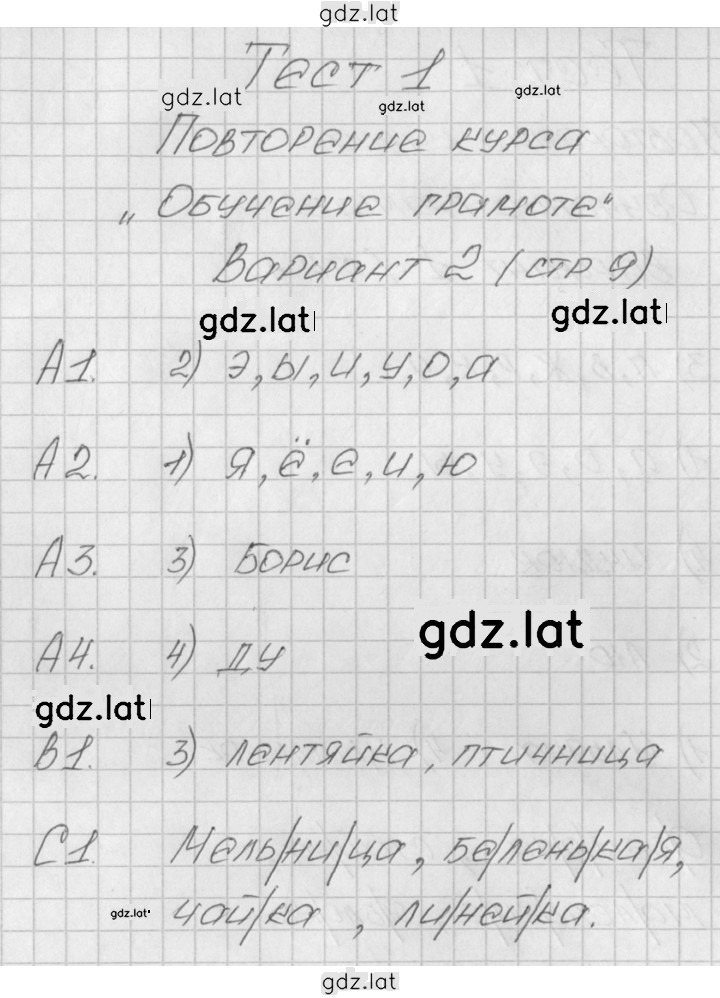 gdz.lat
Тест 1
gdz.lat
gdz.lat
gdz.lat
Повторение курса
„Обучение грамоте"
Вариант 2 (стр 9)
gdz.lat
gdz.lat
А1. 2) Э, ы, и, у, о, а
А2. 1) Я, ё, е, и, ю
А3. 3) Борис
gdz.lat
А4. 4) Ду
gdz.lat
В1. 3) лентяйка, птичница
С1. Мель/ни/ца, бе/лень/ка/я,
gdz.lat чай/ка, ли/ней/ка.
gdz.lat